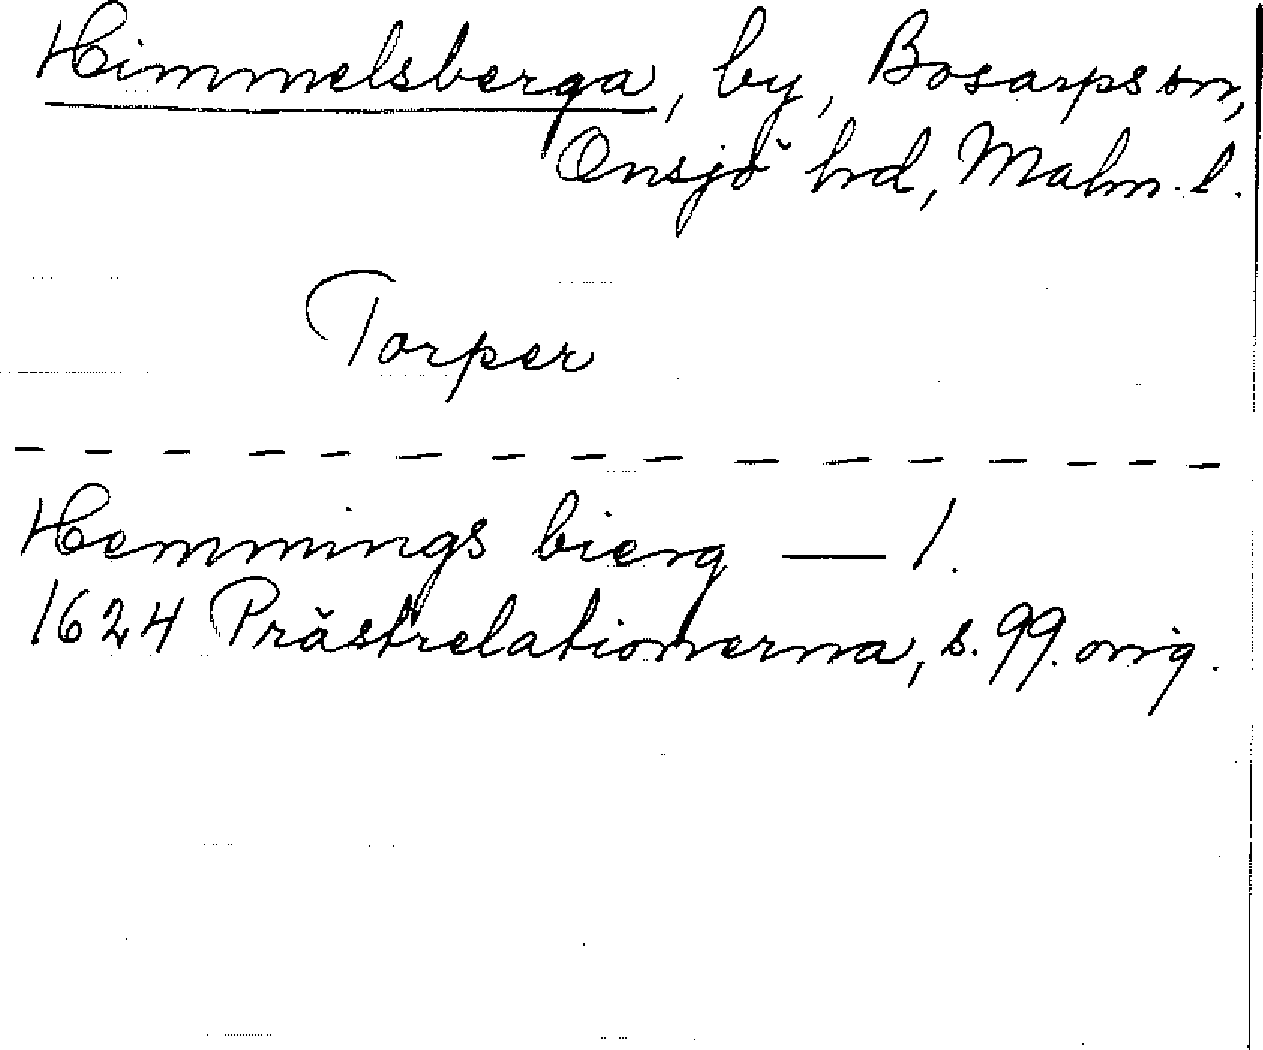 Himmelsberga, by, Bosarps sn,
Onsjö hrd, Malm. l.
Torper
Hemmings bierg — 1.
1624 Prästrelationerna, s. 99. orig.